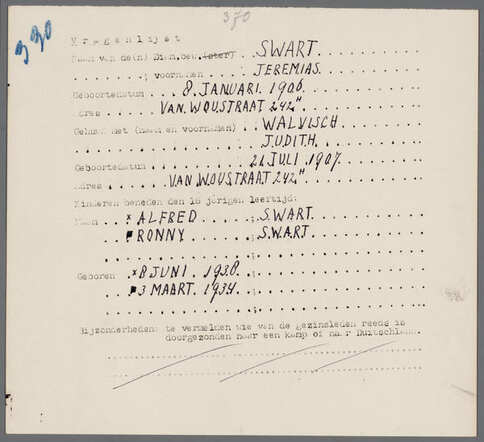 370
330
Vragenlijst
Naam van de(n) Dien.bew.(ster) SWART.
" " voornamen JEREMIAS.
Geboortedatum 8 JANUARI. 1906.
Adres VAN WOUSTRAAT 242"
Gehuwd met (naam en voornamen) WALVISCH
JUDITH.
Geboortedatum 21 JULI. 1907.
Adres VAN WOUSTRAAT 242"
Kinderen beneden den 16 jarigen leeftijd:
Naam × ALFRED ; SWART.
RONNY ; SWART.
Geboren × 8 JUNI. 1938.
3 MAART. 1934.
Bijzonderheden: te vermelden wie van de gezinsleden reeds is
doorgezonden naar een kamp of naar Duitschland.